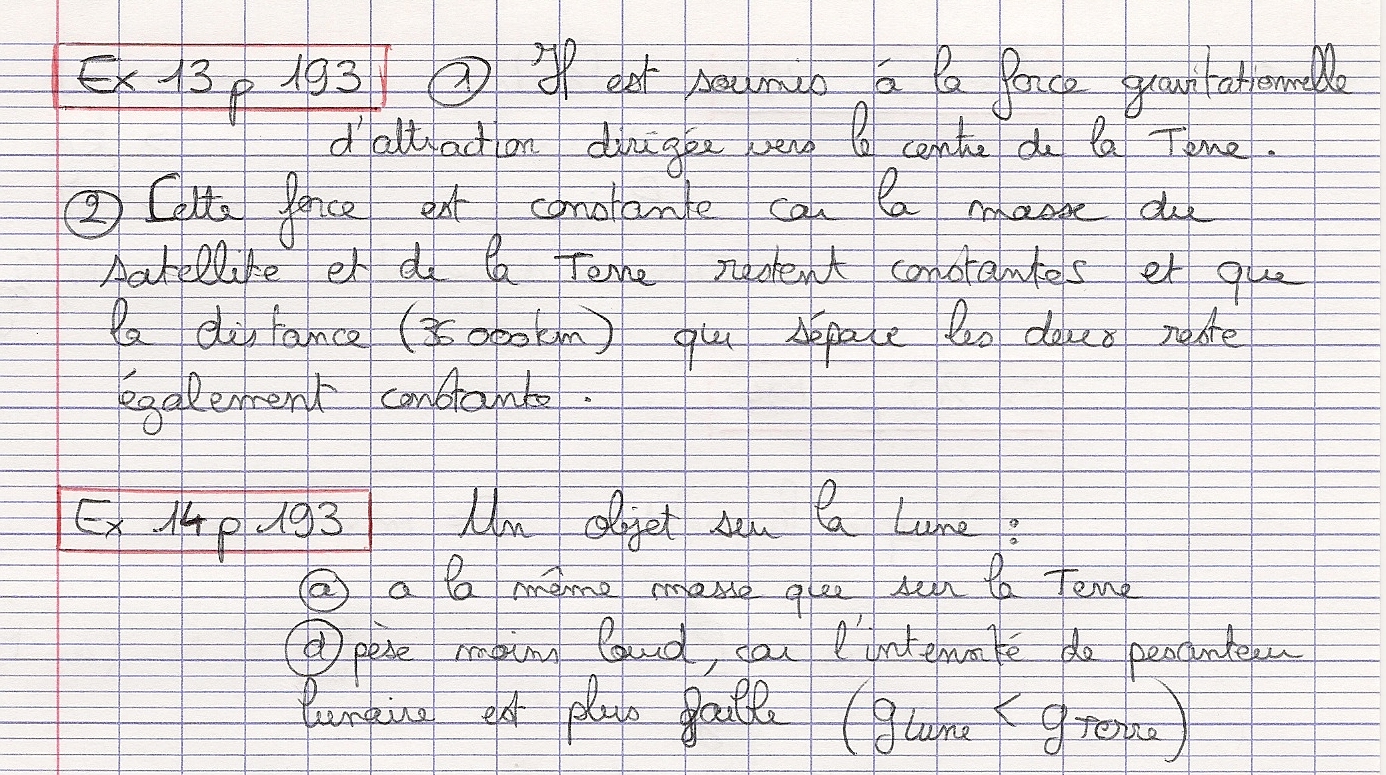 Ex 13 p 193 ① Il est soumis à la force gravitationnelle
d'attraction dirigée vers le centre de la Terre.
② Cette force est constante car la masse du
satellite et de la Terre restent constantes et que
la distance (36 000 km) qui sépare les deux reste
également constante.
Ex 14 p 193 Un objet sur la Lune :
ⓐ a la même masse que sur la Terre
ⓓ pèse moins lourd, car l'intensité de pesanteur
lunaire est plus faible (g Lune < g Terre)